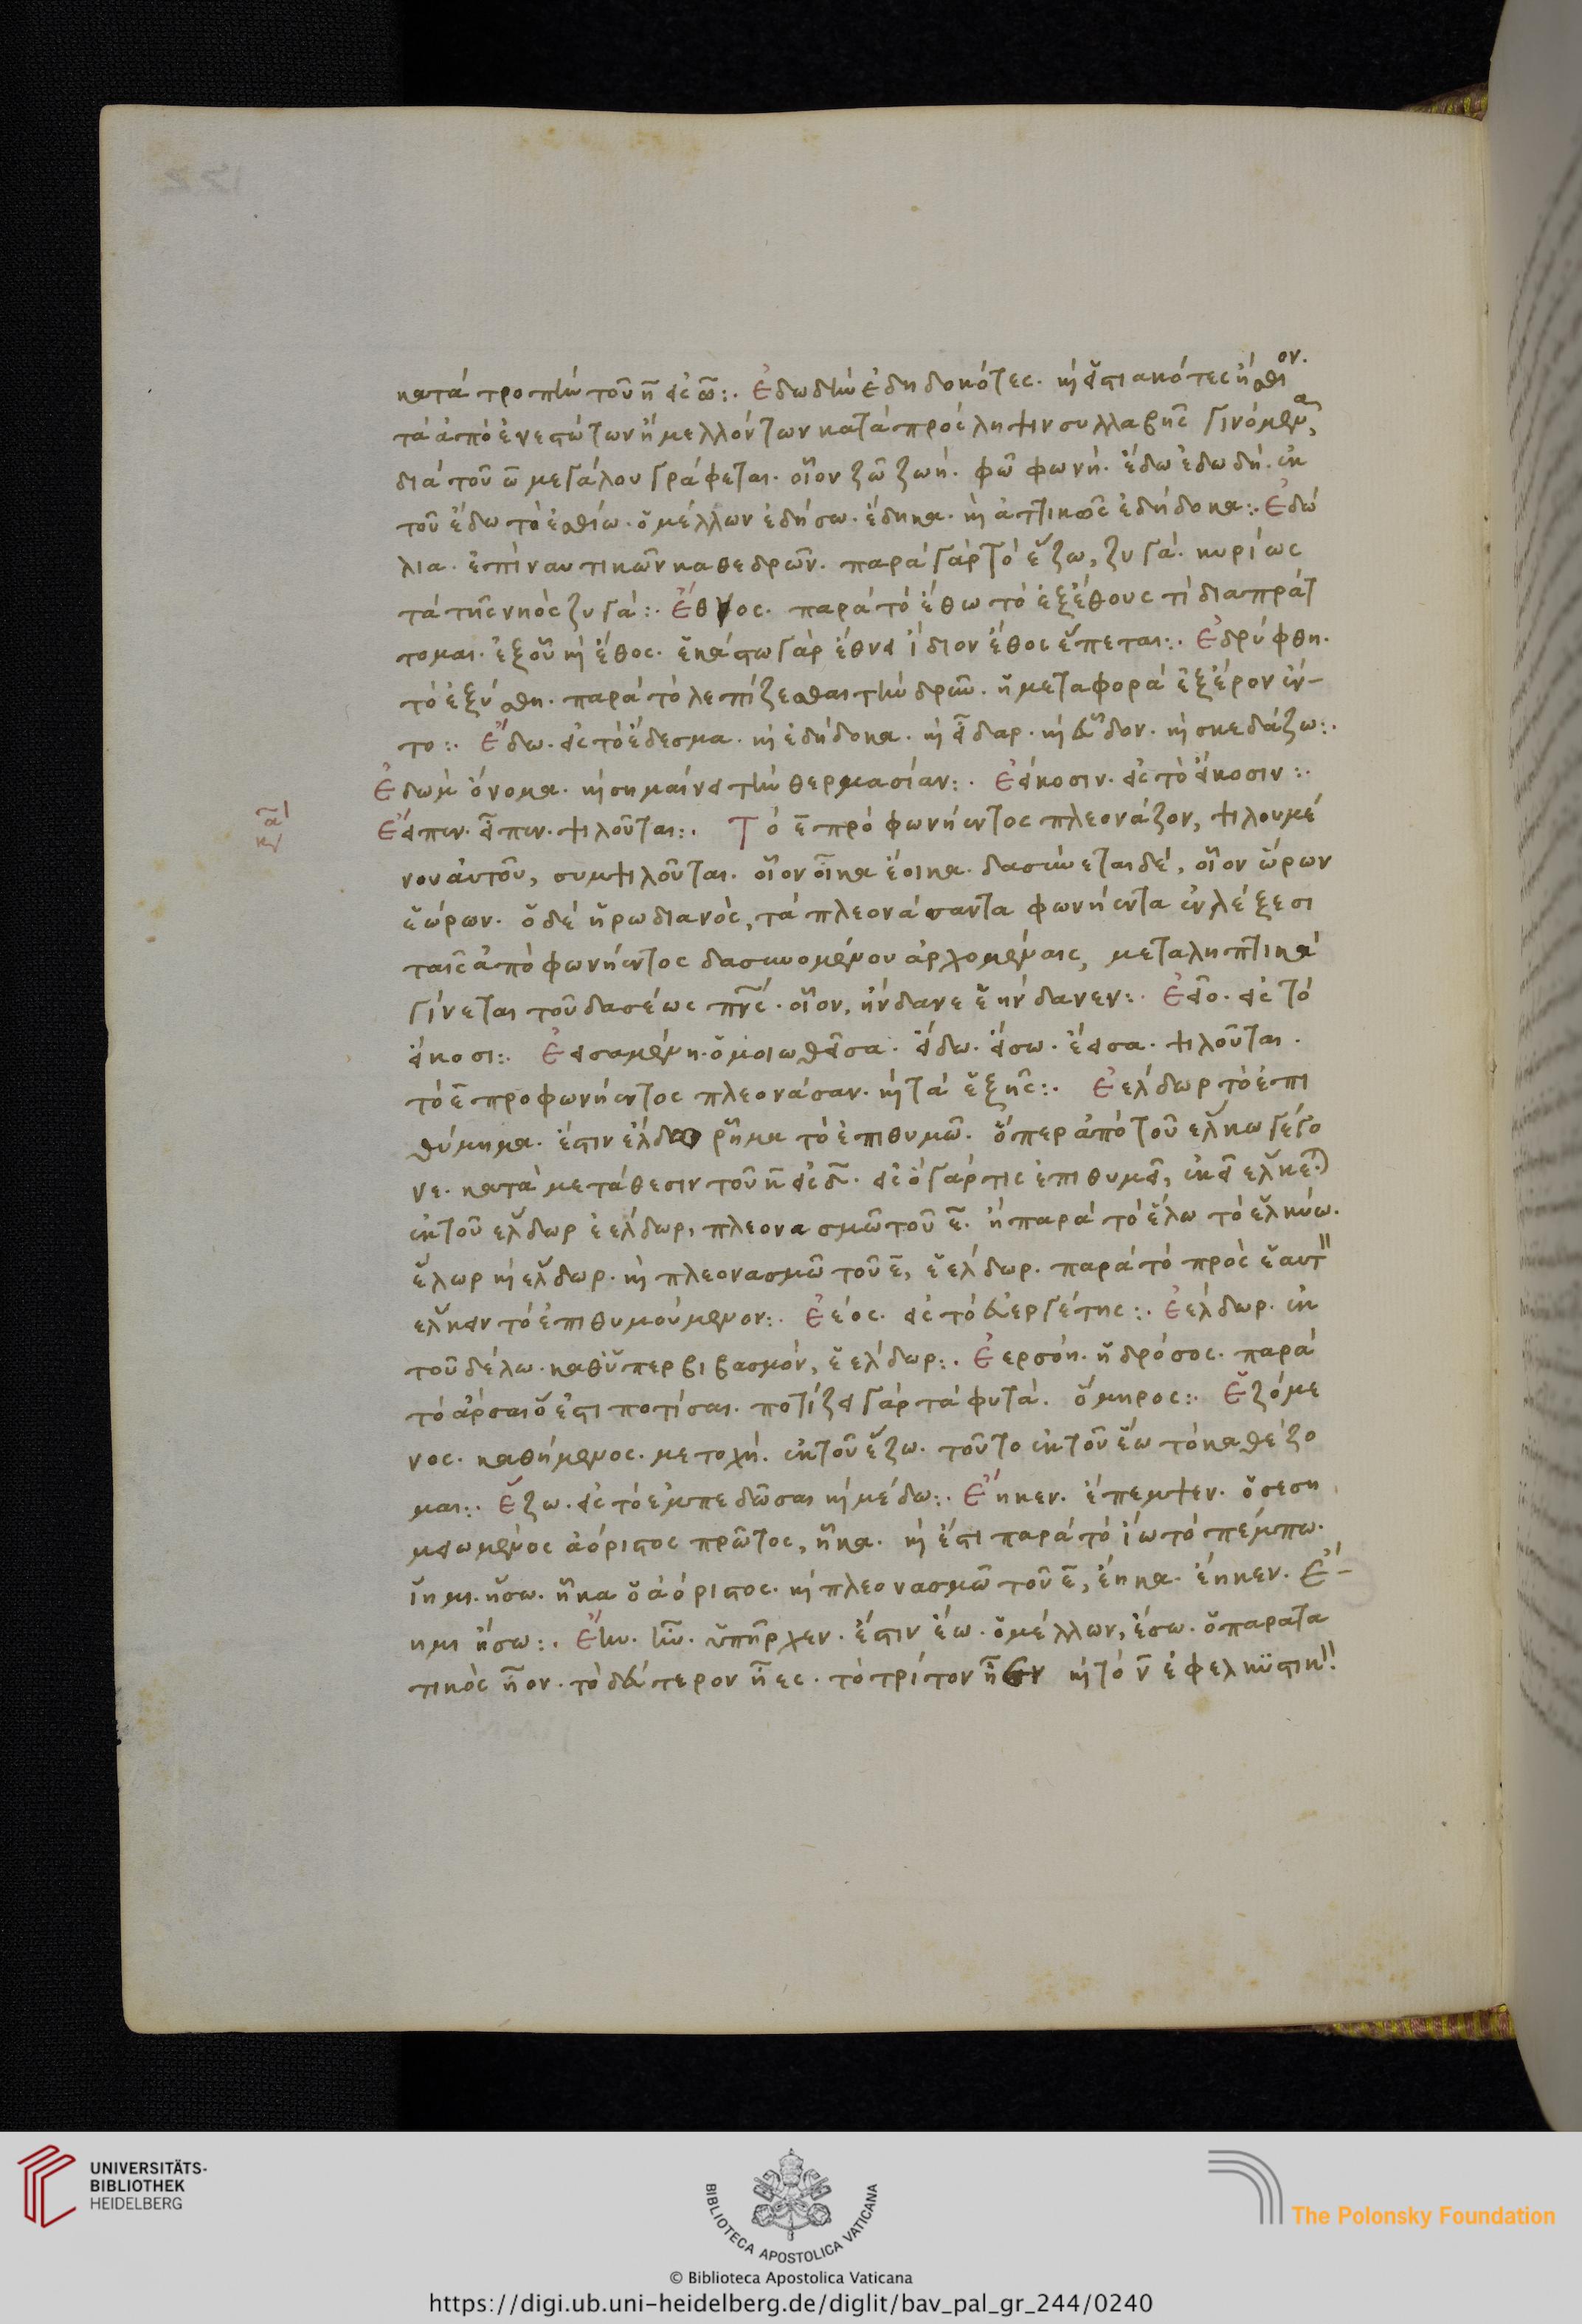 κατὰ τροπὴν τοῦ η̄ εἰς ω̄:· Ἐδωδὴν ἐδηδοκότες· καὶ εἱστιακότες ἤσθιον·
τὰ ἀπὸ ἐνεστώτων ἢ μελλόντων κατὰ πρόσληψιν συλλαβῆς γινόμενα,
διὰ τοῦ ω̄ μεγάλου γράφεται· οἷον ζῶ ζωή· φῶ φωνή· ἔδω ἐδωδή· ἐκ
τοῦ ἔδω τὸ ἐσθίω· ὁ μέλλων ἐδήσω· ἔδηκα· καὶ ἀττικῶς ἐδήδοκα:· Ἐδώ
λια· ἐπὶ ναυτικῶν καθεδρῶν· παρὰ γὰρ τὸ ἕζω, ζυγά· κυρίως
τὰ τῆς νηὸς ζυγά:· Ἔθνος· παρὰ τὸ ἔθω τὸ ἐξ ἔθους τὶ διαπράτ
τομαι· ἐξ οὗ καὶ ἔθος· ἑκάστω γὰρ ἔθνει ἴδιον ἔθος ἕπεται:· Ἐδρύφθη·
τὸ ἐξύσθη· παρὰ τὸ λεπίζεσθαι τὴν δρῦν· ἡ μεταφορὰ ἐξ ἔρον ἐν–
το:· Ἔδω· εἰς τὸ ἔδεσμα· καὶ ἐδήδοκα· καὶ εἶδαρ· καὶ εὗδον· καὶ σκεδάζω:·
Ἐδωμ ὄνομα· καὶ σημαίνει τὴν θερμασίαν:· Ἐείκοσιν· εἰς τὸ εἴκοσιν:·
Ἔειπεν· εἶπεν· ψιλοῦται:· Τὸ ε̄ πρὸ φωνήεντος πλεονάζον, ψιλουμέ
νου αὐτοῦ, συμψιλοῦται· οἷον οἶκα ἔοικα· δασύνεται δὲ, οἷον ὥρων
ἑώρων· ὁ δὲ ἡρωδιανὸς, τὰ πλεονάσαντα φωνήεντα ἐν λέξεσι
ταῖς ἀπὸ φωνήεντος δασυνομένου ἀρχομέναις, μεταληπτικὰ
γίνεται τοῦ δασέως πνς· οἷον, ἥνδανε ἑήνδανεν:· Ἐεῖο· εἰς τὸ
εἴκοσι:· Ἐεισαμένη· ὁμοιωθεῖσα· εἴδω· εἴσω· ἔεισα· ψιλοῦται·
τὸ ε̄ προφωνήεντος πλεονάσαν· καὶ τὰ ἑξῆς:· Ἐελδωρ τὸ ἐπι
θύμημα· ἔστιν ἔλδω ῥῆμα τὸ ἐπιθυμῶ· ὅπερ ἀπὸ τοῦ ἕλκω γέγο
νε· κατὰ μετάθεσιν τοῦ κ̄ εἰς δ̄· εἰς ὃ γάρ τις ἐπιθυμεῖ, ἐκεῖ ἕλκε
ἐκ τοῦ ἕλδωρ ἐέλδωρ, πλεονασμῶ τοῦ ε̄· ἢ παρὰ τὸ ἕλω τὸ ἑλκύω·
ἕλωρ καὶ ἕλδωρ· καὶ πλεονασμῶ τοῦ ε̄, ἑέλδωρ· παρὰ τὸ πρὸς ἑαυτ
ἕλκειν τὸ ἐπιθυμούμενον:· Ἐέος· εἰς τὸ εὐεργέτης:· Ἐέλδωρ· ἐκ
τοῦ δέλω· καθ' ὑπερβιβασμόν, ἑέλδωρ:· Ἐερσόη· ἡ δρόσος· παρὰ
τὸ ἄρσαι ὅ ἐστι ποτίσαι· ποτίζει γὰρ τὰ φυτά· ὅμηρος:· Ἑζόμε
νος· καθήμενος· μετοχή· ἐκ τοῦ ἕζω· τοῦτο ἐκ τοῦ ἕω τὸ καθέζο
μαι:· Ἕζω· εἰς τὸ ἐμπεδῶσαι καὶ μέδω:· Ἔηκεν· ἔπεμψεν· ὁ σεση
μειωμένος ἀόριστος πρῶτος, ἧκα· καὶ ἔστι παρὰ τὸ ἵω τὸ πέμπω·
ἵημι· ἥσω· ἧκα ὁ ἀόριστος· καὶ πλεονασμῶ τοῦ ε̄, ἕηκα· ἕηκεν· Ἔ–
ημι ἥσω:· Ἔην· ἦν· ὑπῆρχεν· ἔστιν ἔω· ὁ μέλλων, ἔσω· ὁ παρατα
τικὸς ἦον· τὸ δεύτερον ἦες· τὸ τρίτον ἦεν καὶ τὸ ν̄ ἐφελκυστικ
UNIVERSITÄTS-
BIBLIOTHEK
HEIDELBERG
BIBLIOTECA APOSTOLICA VATICANA
The Polonsky Foundation
© Biblioteca Apostolica Vaticana
https://digi.ub.uni-heidelberg.de/diglit/bav_pal_gr_244/0240